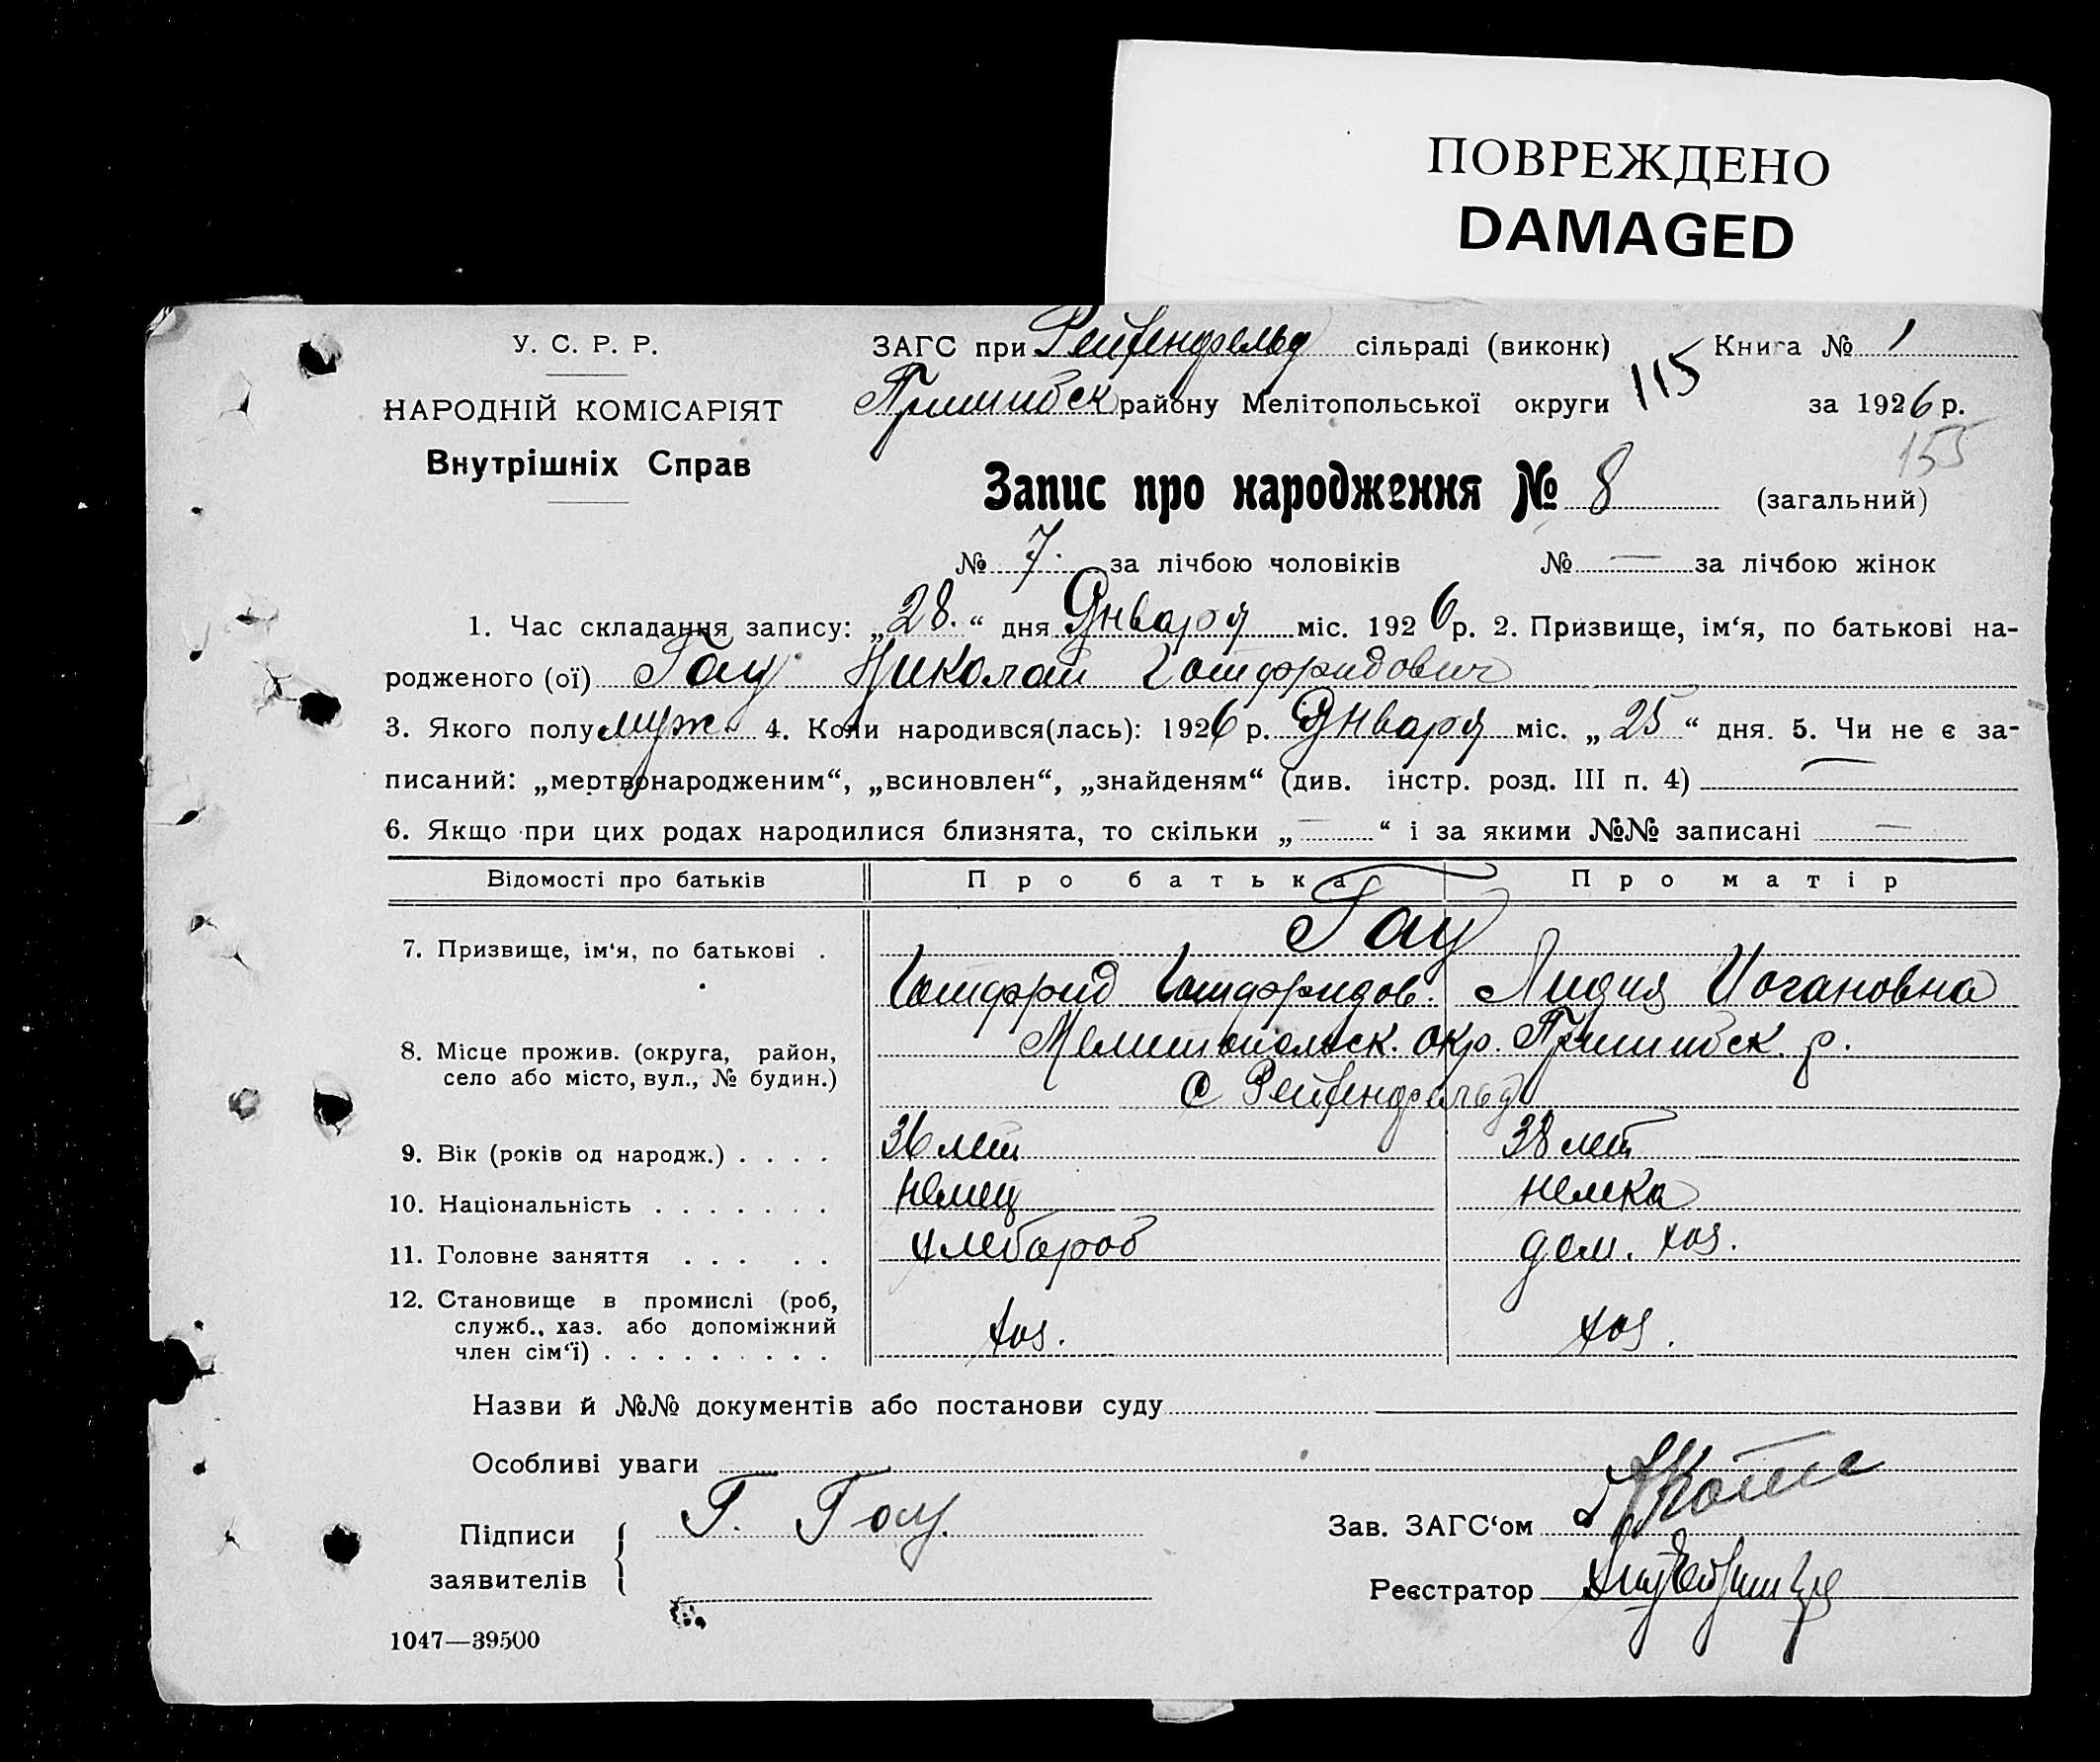 ПОВРЕЖДЕНО
DAMAGED
У. С. Р. Р.
НАРОДНІЙ КОМІСАРІЯТ
Внутрішніх Справ
ЗАГС при Рейхенфельд сільраді (виконк) Книга № 1
115
Пришибск району Мелітопольської округи за 1926 р.
155
Запис про народження № 8 (загальний)
№ 7. за лічбою чоловіків № — за лічбою жінок
1. Час складання запису: „28.“ дня Января міс. 1926 р. 2. Призвище, ім‘я, по батькові на-
родженого (ої) Гау Николай Готфридович
3. Якого полу муж. 4. Коли народився(лась): 1926 р. Января міс. „25“ дня. 5. Чи не є за-
писаний: „мертвонародженим“, „всиновлен“, „знайденям“ (див. інстр. розд. III п. 4) —
6. Якщо при цих родах народилися близнята, то скільки „—“ і за якими №№ записані —
Відомості про батьків Про батька Про матір
Гау
7. Призвище, ім‘я, по батькові .
Готфрид Готфридов. Лидия Иогановна
8. Місце прожив. (округа, район,
село або місто, вул., № будин.)
Мелитопольск. окр. Пришибск. р.
С Рейхенфельд
9. Вік (років од народж.) . . . . 36 лет 38 лет
10. Національність . . . . . . . немец немка
11. Головне заняття . . . . . хлебороб дом. хоз.
12. Становище в промислі (роб,
служб., хаз. або допоміжний
член сім‘ї) . . . . . . . . . хоз. хоз.
Назви й №№ документів або постанови суду
Особливі уваги
Підписи
заявителів
Г. Гау.
Зав. ЗАГС‘ом
Реєстратор
1047—39500